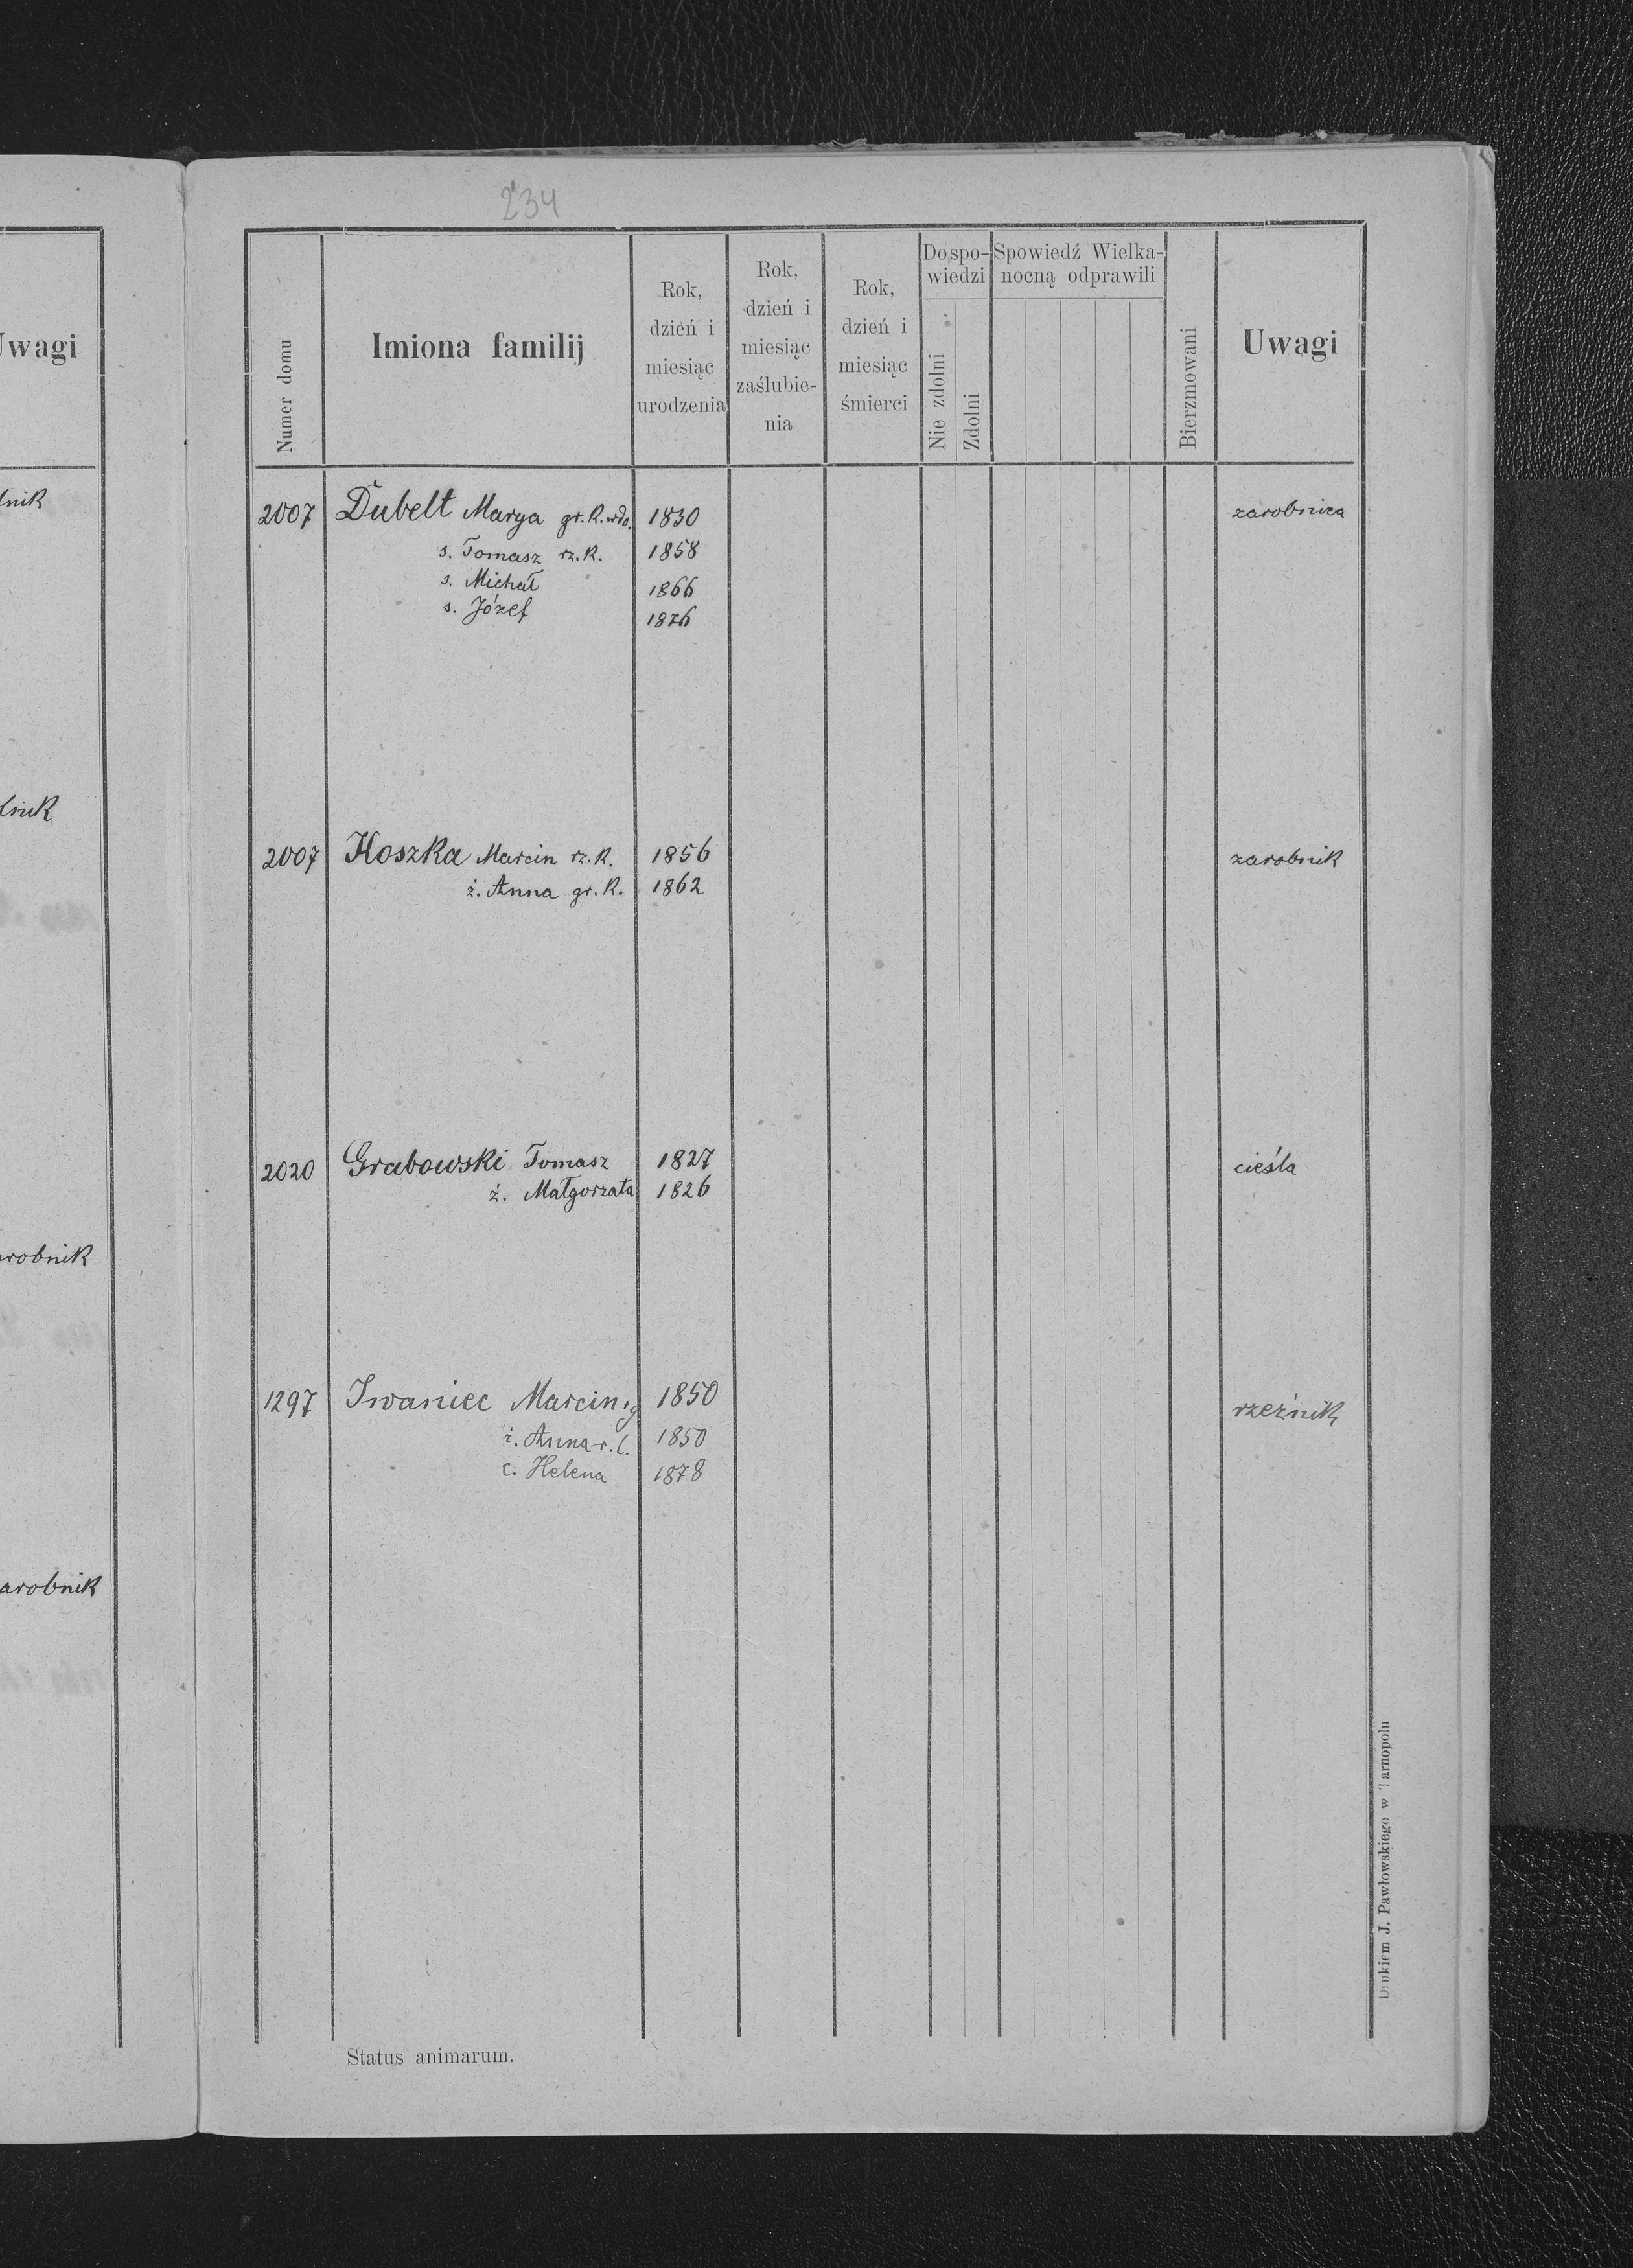 234
Uwagi
Numer domu
Imiona familij
Rok,
dzień i
miesiąc
urodzenia
Rok,
dzień i
miesiąc
zaślubie-
nia
Rok,
dzień i
miesiąc
śmierci
Do spo-
wiedzi
Nie zdolni
Zdolni
Spowiedź Wielka-
nocną odprawili
Bierzmowani
Uwagi
2007 Dubelt Marya gr.k. wdo. 1830 zarobnica
s. Tomasz rz.k. 1858
s. Michał 1866
s. Józef 1876
2007 Koszka Marcin rz.k. 1856 zarobnik
ż. Anna gr.k. 1862
2020 Grabowski Tomasz 1827 cieśla
ż. Małgorzata 1826
1297 Iwaniec Marcin r.g 1850 rzeźnik
ż. Anna r.l. 1850
c. Helena 1878
arobnik
arobnik
Status animarum.
Drukiem J. Pawłowskiego w Tarnopolu